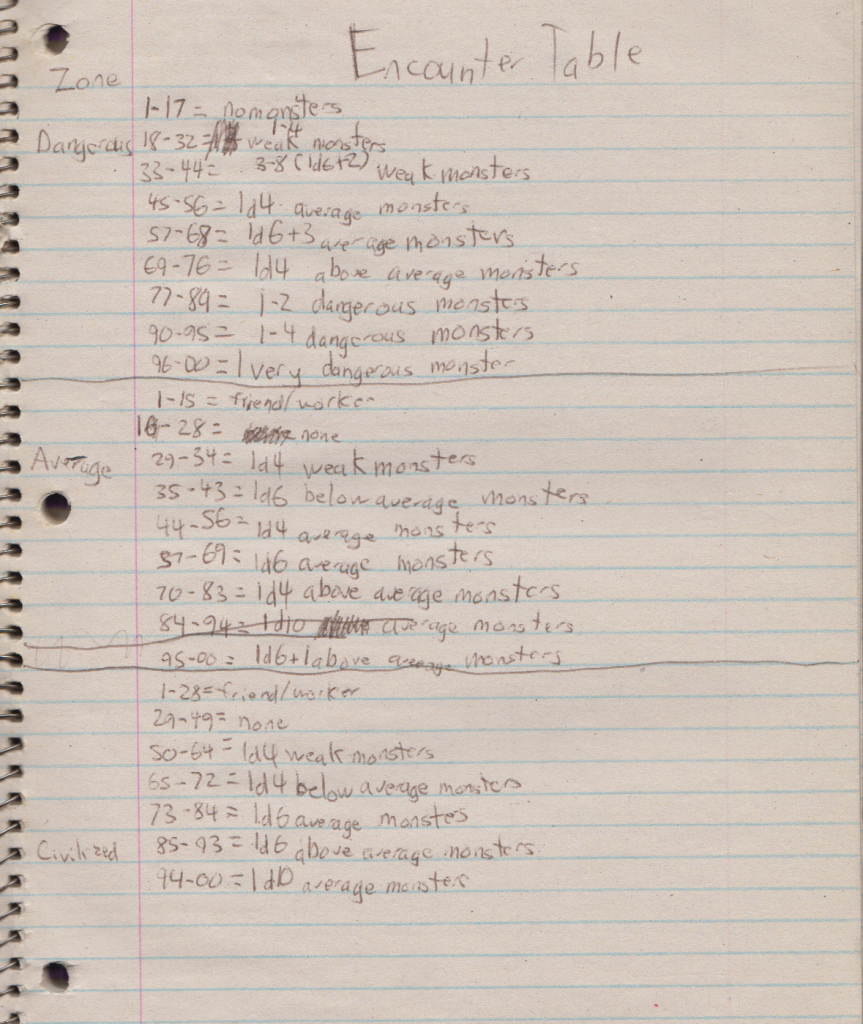 Encounter Table
Zone
1-17 = no monsters
Dangerous 18-32 = 1-4 weak monsters
33-44 = 3-8 (1d6+2) weak monsters
45-56 = 1d4 average monsters
57-68 = 1d6+3 average monsters
69-76 = 1d4 above average monsters
77-89 = 1-2 dangerous monsters
90-95 = 1-4 dangerous monsters
96-00 = 1 very dangerous monster
1-15 = friend/worker
16-28 = none
Average 29-34 = 1d4 weak monsters
35-43 = 1d6 below average monsters
44-56 = 1d4 average monsters
57-69 = 1d6 average monsters
70-83 = 1d4 above average monsters
84-94 = 1d10 average monsters
95-00 = 1d6+1 above average monsters
1-28 = friend/worker
29-49 = none
50-64 = 1d4 weak monsters
65-72 = 1d4 below average monsters
73-84 = 1d6 average monsters
Civilized 85-93 = 1d6 above average monsters
94-00 = 1d10 average monsters